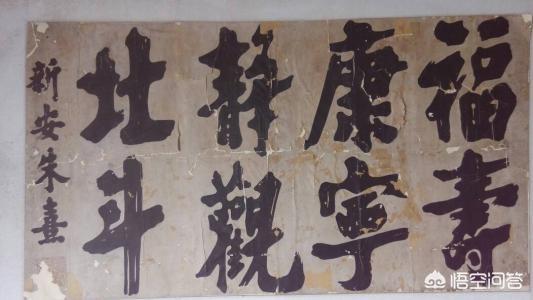 福寿
康寧
静觀
北斗
新安朱熹
悟空问答